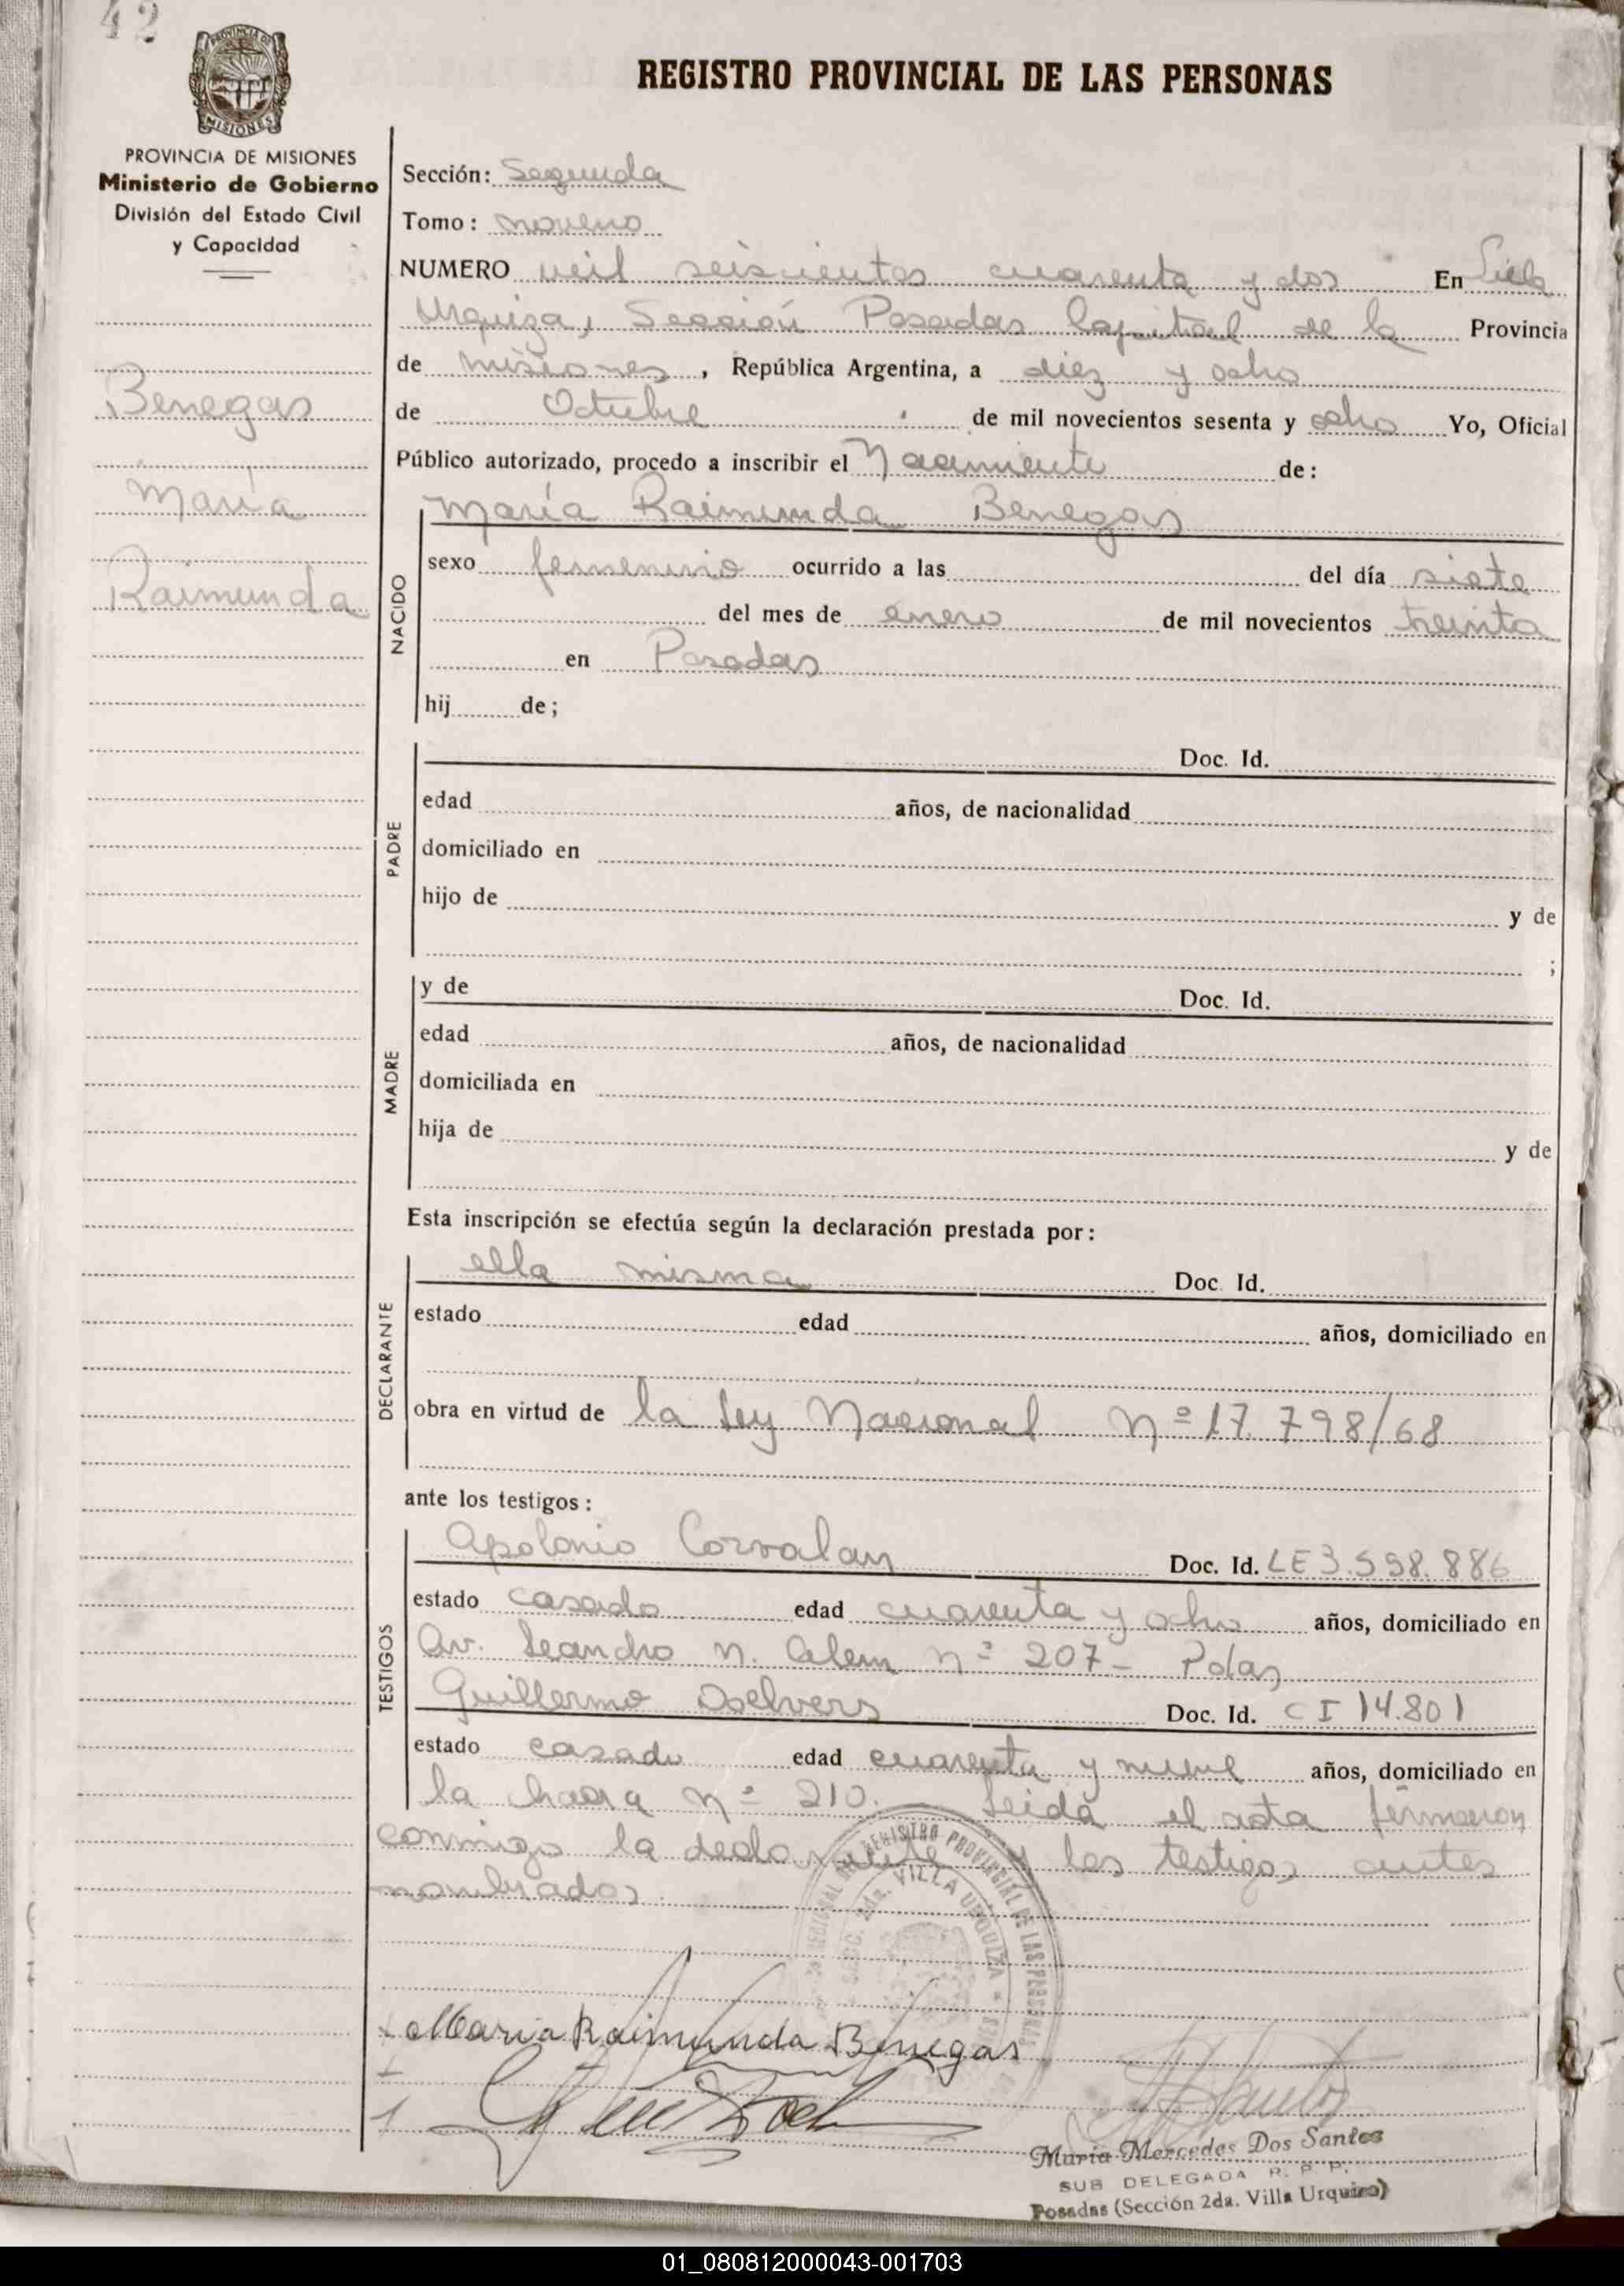 42
PROVINCIA DE
MISIONES
REGISTRO PROVINCIAL DE LAS PERSONAS
PROVINCIA DE MISIONES
Ministerio de Gobierno
División del Estado Civil
y Capacidad
Benegas
María
Raimunda
Sección: Segunda
Tomo: noveno
NUMERO mil seiscientos cuarenta y dos En Villa
Urquiza, Sección Posadas Capital de la Provincia
de misiones, República Argentina, a diez y ocho
de Octubre de mil novecientos sesenta y ocho Yo, Oficial
Público autorizado, procedo a inscribir el Nacimiento de:
NACIDO
María Raimunda Benegas
sexo femenino ocurrido a las del día siete
del mes de enero de mil novecientos treinta
en Posadas
hij de;
PADRE
Doc. Id.
edad años, de nacionalidad
domiciliado en
hijo de y de
;
MADRE
y de Doc. Id.
edad años, de nacionalidad
domiciliada en
hija de y de
Esta inscripción se efectúa según la declaración prestada por:
DECLARANTE
ella misma Doc. Id.
estado edad años, domiciliado en
obra en virtud de la Ley Nacional Nº 17.798/68
ante los testigos:
TESTIGOS
Apolonio Corvalan Doc. Id. LE 3.598.886
estado casado edad cuarenta y ocho años, domiciliado en
Av. Leandro N. Alem nº 207 - Pdas
Guillermo Doc. Id. CI 14.801
estado casado edad cuarenta y nueve años, domiciliado en
la chacra Nº 210. Leida el acta firmaron
conmigo la declarante y los testigos antes
nombrados
REGISTRO PROVINCIAL DE LAS PERSONAS
VILLA URQUIZA
María Raimunda Benegas
María Mercedes Dos Santos
SUB DELEGADA R. P. P.
Posadas (Sección 2da. Villa Urquiza)
01_080812000043-001703